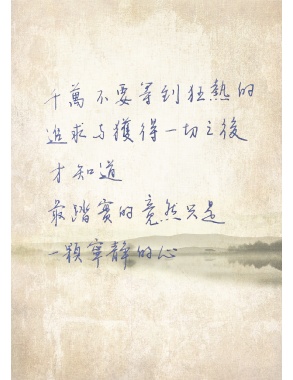 千萬不要等到狂熱的
追求與獲得一切之後
才知道
最踏實的竟然只是
一顆寧靜的心